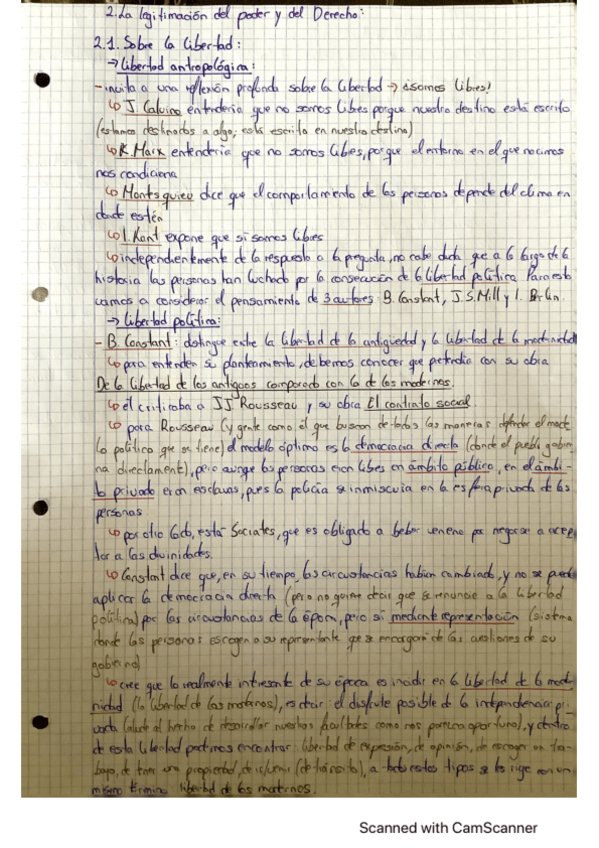 2. La legitimación del poder y del Derecho:
2.1. Sobre la libertad:
→ libertad antropológica:
- invita a una reflexión profunda sobre la libertad → ¿somos libres?
↳ J. Calvino entendería que no somos libres porque nuestro destino está escrito
(estamos destinados a algo; está escrito en nuestro destino)
↳ K. Marx entendería que no somos libres, porque el entorno en el que nacimos
nos condiciona
↳ Montsquieu dice que el comportamiento de las personas depende del clima en
donde estén
↳ I. Kant expone que si somos libres
↳ independientemente de la respuesta a la pregunta, no cabe duda que a lo largo de la
historia las personas han luchado por la consecución de la libertad política. Para esto
vamos a considerar el pensamiento de 3 autores: B. Constant, J.S. Mill y I. Berlin.
→ libertad política:
- B. Constant: distingue entre la libertad de la antiguedad y la libertad de la modernidad
↳ para entender su planteamiento, debemos conocer que pretendía con su obra
De la libertad de los antiguos comparado con la de los modernos.
↳ él criticaba a JJ Rousseau y su obra El contrato social
↳ para Rousseau (y gente como él que buscan de todas las maneras defender el mode
lo político que se tiene) el modelo óptimo es la democracia directa (donde el pueblo gobier
na directament), pero aunqe las personas eran libes en ámbito público, en el ámbi-
to privado eran esclavas, pues la policía se inmiscuia en la esfera privada de las
personas
↳ por otro lado, está Sócrates, que es obligado a beber veneno por negarse a acep
tar a las divinidades.
↳ Constant dice que, en su tiempo, las circustancias habían cambiado, y no se puede
aplicar la democracia directa (pero no quiere decir que se renuncie a la libertad
política) por las circustancias de la época, pero si mediante representación (sistema
donde las personas escogen a su representante que se encargará de las cuestiones de su
gobierno)
↳ cree que lo realmente interesante de su época es incidir en la libertad de la moder
nidad (la libertad de los modernos), es decir: el disfrute posible de la independencia pri-
vada (alude al hecho de desarrollar nuestras facultades como nos parezca oportuno), y dentro
de esta libertad podemos encontrar: libertad de expresión, de opinión, de escoger un tra-
bajo, de tener una propiedad, de circular (de tránsito), a todos estos tipos se les rige con un
mismo término libertad de los modernos.
Scanned with CamScanner